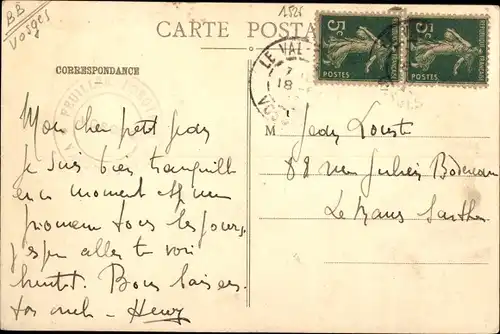 BB
Vosges
1526
CARTE POSTA
CORRESPONDANCE
LE VAL
18
VOS
5c
POSTES
5c
POSTES
Mon cher petit Jedy
Je suis bien tranquille
en ce moment et me
promene tous les jours,
j'espere aller te voir
bientot. Bons baisers
ton oncle - Henry
M Jedy
88 rue Julien Bodereau
Le Mans Sarthe